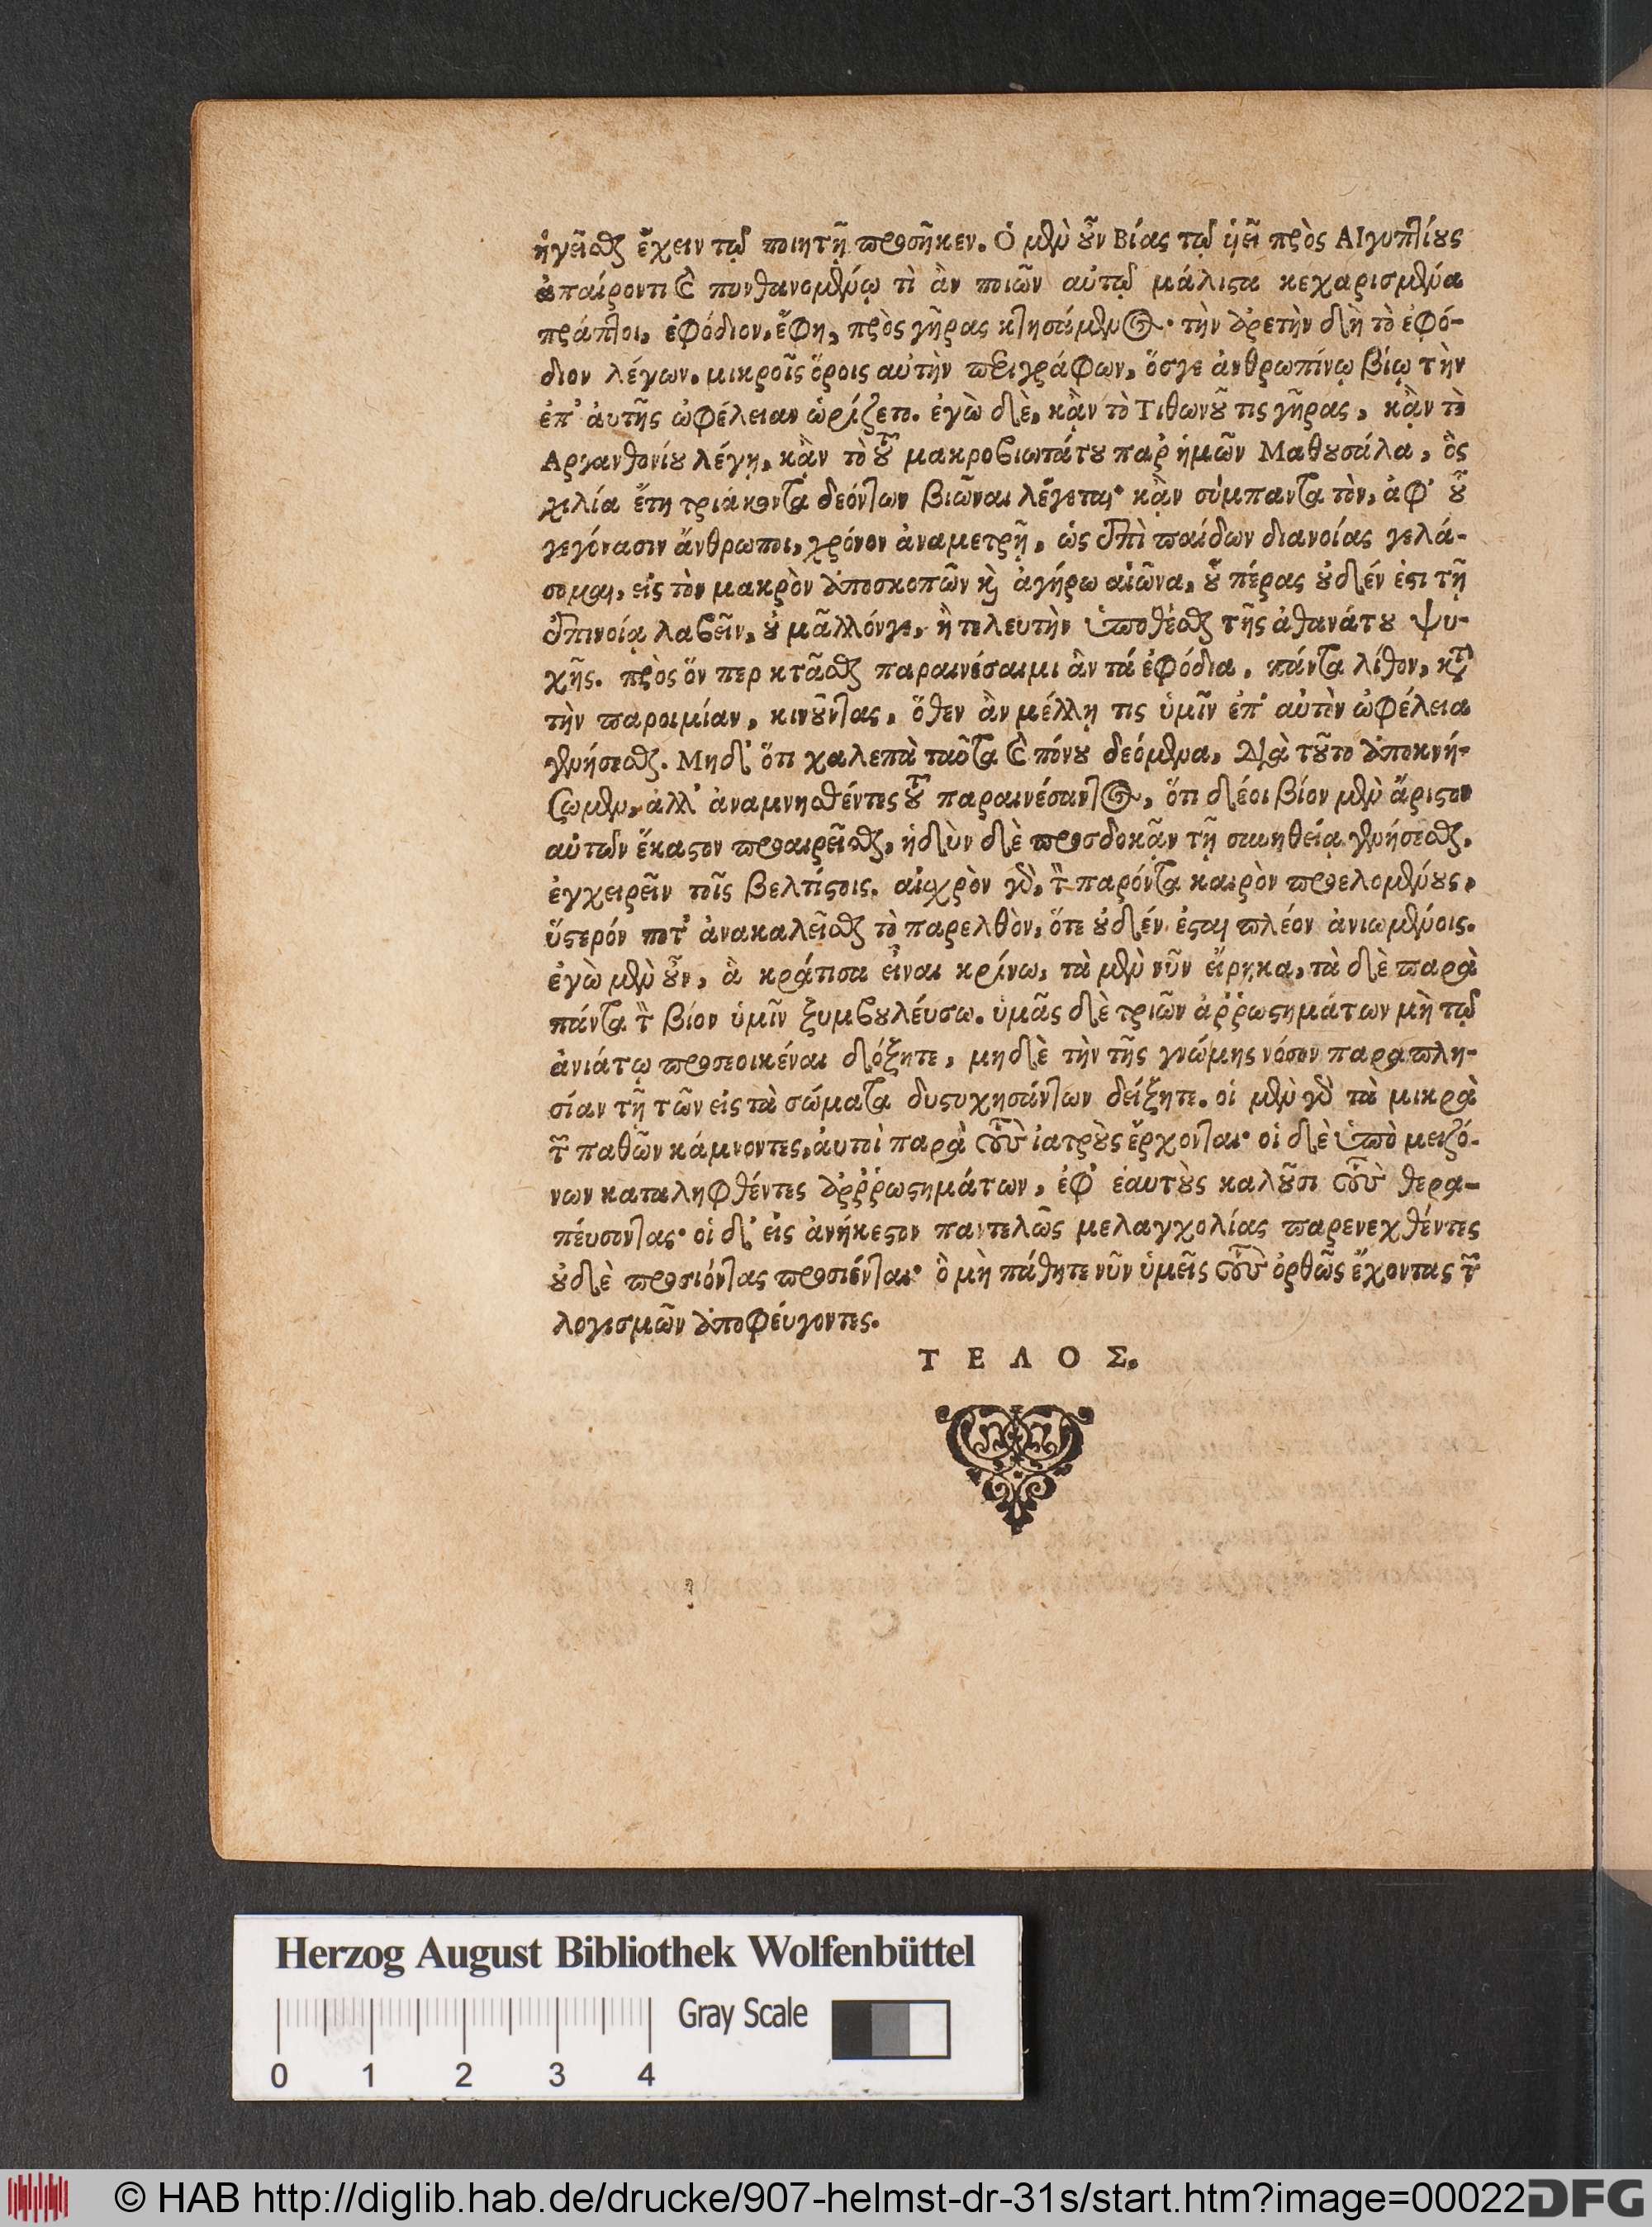 ἡγεῖσθαι ἔχειν τῷ ποιητῇ προσῆκεν. Ὁ μὲν οὖν Βίας τῷ ὑιεῖ πρὸς ΑΙγυπτίους
ἀπαίροντι καὶ πυνθανομένῳ τὶ ἂν ποιῶν αὐτῷ μάλιστα κεχαρισμένα
πράττοι, ἐφόδιον, ἔφη, πρὸς γῆρας κτησάμενος· τὴν ἀρετὴν δὴ τὸ ἐφό-
διον λέγων. μικροῖς ὅροις αὐτὴν περιγράφων, ὅσγε ἀνθρωπίνῳ βίῳ τὴν
ἐπ' ἀυτῆς ὠφέλειαν ὡρίζετο. ἐγὼ δὲ, κᾂν τὸ Τιθωνοῦ τις γῆρας, κᾂν τὸ
Αργανθονίου λέγῃ, κᾂν τὸ τοῦ μακροβιωτάτου παρ' ἡμῶν Μαθουσάλα, ὃς
χιλία ἔτη τριάκοντα δεόντων βιῶναι λέγεται· κᾂν σύμπαντα τὸν, ἀφ' οὗ
γεγόνασιν ἄνθρωποι, χρόνον ἀναμετρῇ, ὡς ἐπὶ παίδων διανοίας γελά-
σομαι, εἰς τὸν μακρὸν ἀποσκοπῶν καὶ ἀγήρω αἰῶνα, οὗ πέρας οὐδέν ἐστι τῇ
ἐπινοίᾳ λαβεῖν, οὐ μᾶλλόνγε, ἢ τελευτὴν ὑποθέσθαι τῆς ἀθανάτου ψυ-
χῆς. πρὸς ὅν περ κτᾶσθαι παραινέσαιμι ἂν τά ἐφόδια, πάντα λίθον, κατὰ
τὴν παροιμίαν, κινοῦντας, ὅθεν ἂν μέλλῃ τις ὑμῖν ἐπ' αὐτὸν ὠφέλεια
γενήσεσθαι. Μηδ' ὅτι χαλεπὰ ταῦτα καὶ πόνου δεόμενα, διὰ τοῦτο ἀποκνή-
σωμεν, ἀλλ' ἀναμνησθέντες τοῦ παραινέσαντος, ὅτι δέοι βίον μὲν ἄριστον
αὐτὸν ἕκαστον προαιρεῖσθαι, ἡδὺν δὲ προσδοκᾷν τῇ συνηθείᾳ γενήσεσθαι.
ἐγχειρεῖν τοῖς βελτίστοις. αἰσχρὸν γὰρ, τὸν παρόντα καιρὸν προελομένους,
ὕστερόν ποτ' ἀνακαλεῖσθαι τὸ παρελθὸν, ὅτε οὐδέν ἐσται πλέον ἀνιωμένοις.
ἐγὼ μὲν οὖν, ἃ κράτιστα εἶναι κρίνω, τὰ μὲν νῦν εἴρηκα, τὰ δὲ παρὰ
πάντα τὸν βίον ὑμῖν ξυμβουλέυσω. ὑμᾶς δὲ τριῶν ἀῤῥωστημάτων μὴ τῷ
ἀνιάτῳ προσεοικέναι δόξητε, μηδὲ τὴν τῆς γνώμης νόσον παραπλη-
σίαν τῇ τῶν εἰς τὰ σώματα δυστυχησάντων δείξητε. οἱ μὲν γὰρ τὰ μικρὰ
τῶν παθῶν κάμνοντες, ἀυτοὶ παρὰ τοὺς ἰατροὺς ἔρχονται· οἱ δὲ ὑπὸ μειζό-
νων καταληφθέντες ἀῤῥωστημάτων, ἐφ' ἑαυτοὺς καλοῦσι τοὺς θερα-
πέυσοντας· οἱ δ' εἰς ἀνήκεστον παντελῶς μελαγχολίας παρενεχθέντες
οὐδὲ προσιόντας προσιένται· ὃ μὴ πάθητε νῦν ὑμεῖς τοὺς ὀρθῶς ἔχοντας τῶν
λογισμῶν ἀποφέυγοντες.
ΤΕΛΟΣ.
Herzog August Bibliothek Wolfenbüttel
Gray Scale
0 1 2 3 4
© HAB http://diglib.hab.de/drucke/907-helmst-dr-31s/start.htm?image=00022
DFG